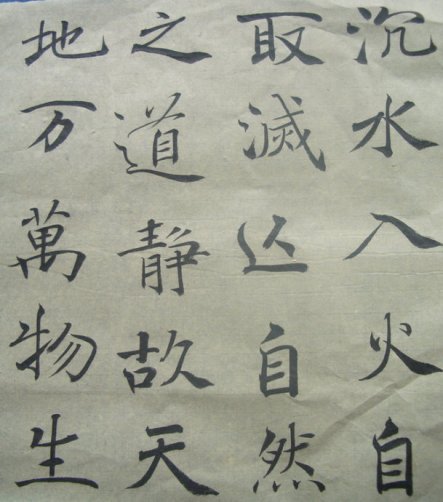 沉水入火自
取滅亾自然
之道静故天
地万萬物生